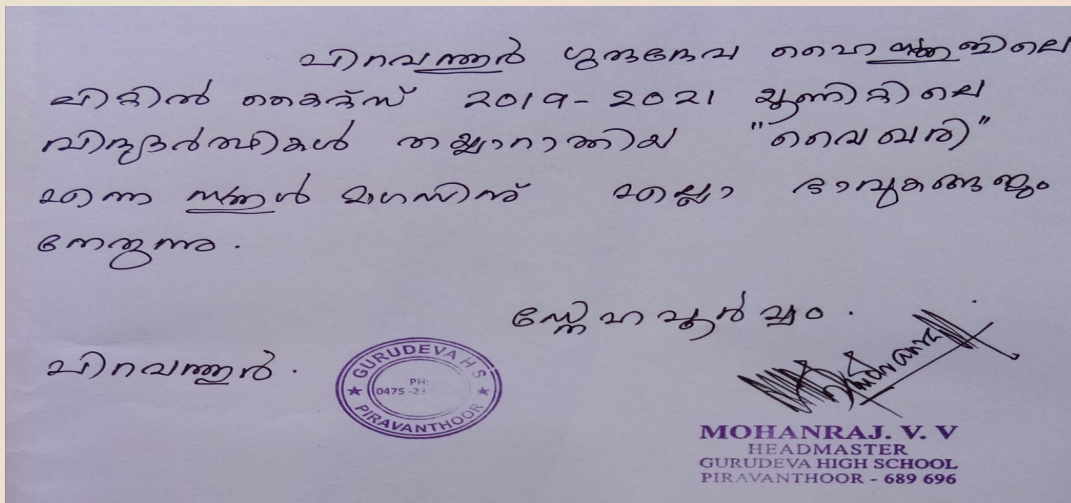 പിറവന്തൂർ ഗുരുദേവ ഹൈസ്ക്കൂളിലെ
ലിറ്റിൽ കൈറ്റ്സ് 2019-2021 യൂണിറ്റിലെ
വിദ്യാർത്ഥികൾ തയ്യാറാക്കിയ "വൈഖരി"
എന്ന സ്ക്കൂൾ മാഗസിന് എല്ലാ ഭാവുകങ്ങളും
നേരുന്നു.
സ്നേഹപൂർവ്വം.
പിറവന്തൂർ.
GURUDEVA H S
PH:
0475-23
PIRAVANTHOOR
MOHANRAJ. V. V
HEADMASTER
GURUDEVA HIGH SCHOOL
PIRAVANTHOOR - 689 696